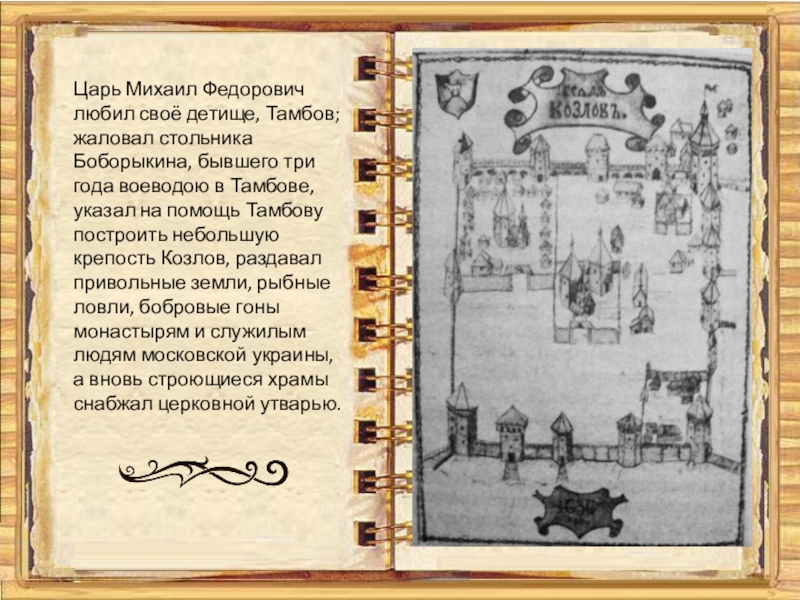 Царь Михаил Федорович
любил своё детище, Тамбов;
жаловал стольника
Боборыкина, бывшего три
года воеводою в Тамбове,
указал на помощь Тамбову
построить небольшую
крепость Козлов, раздавал
привольные земли, рыбные
ловли, бобровые гоны
монастырям и служилым
людям московской украины,
а вновь строющиеся храмы
снабжал церковной утварью.
КОЗЛОВЪ.